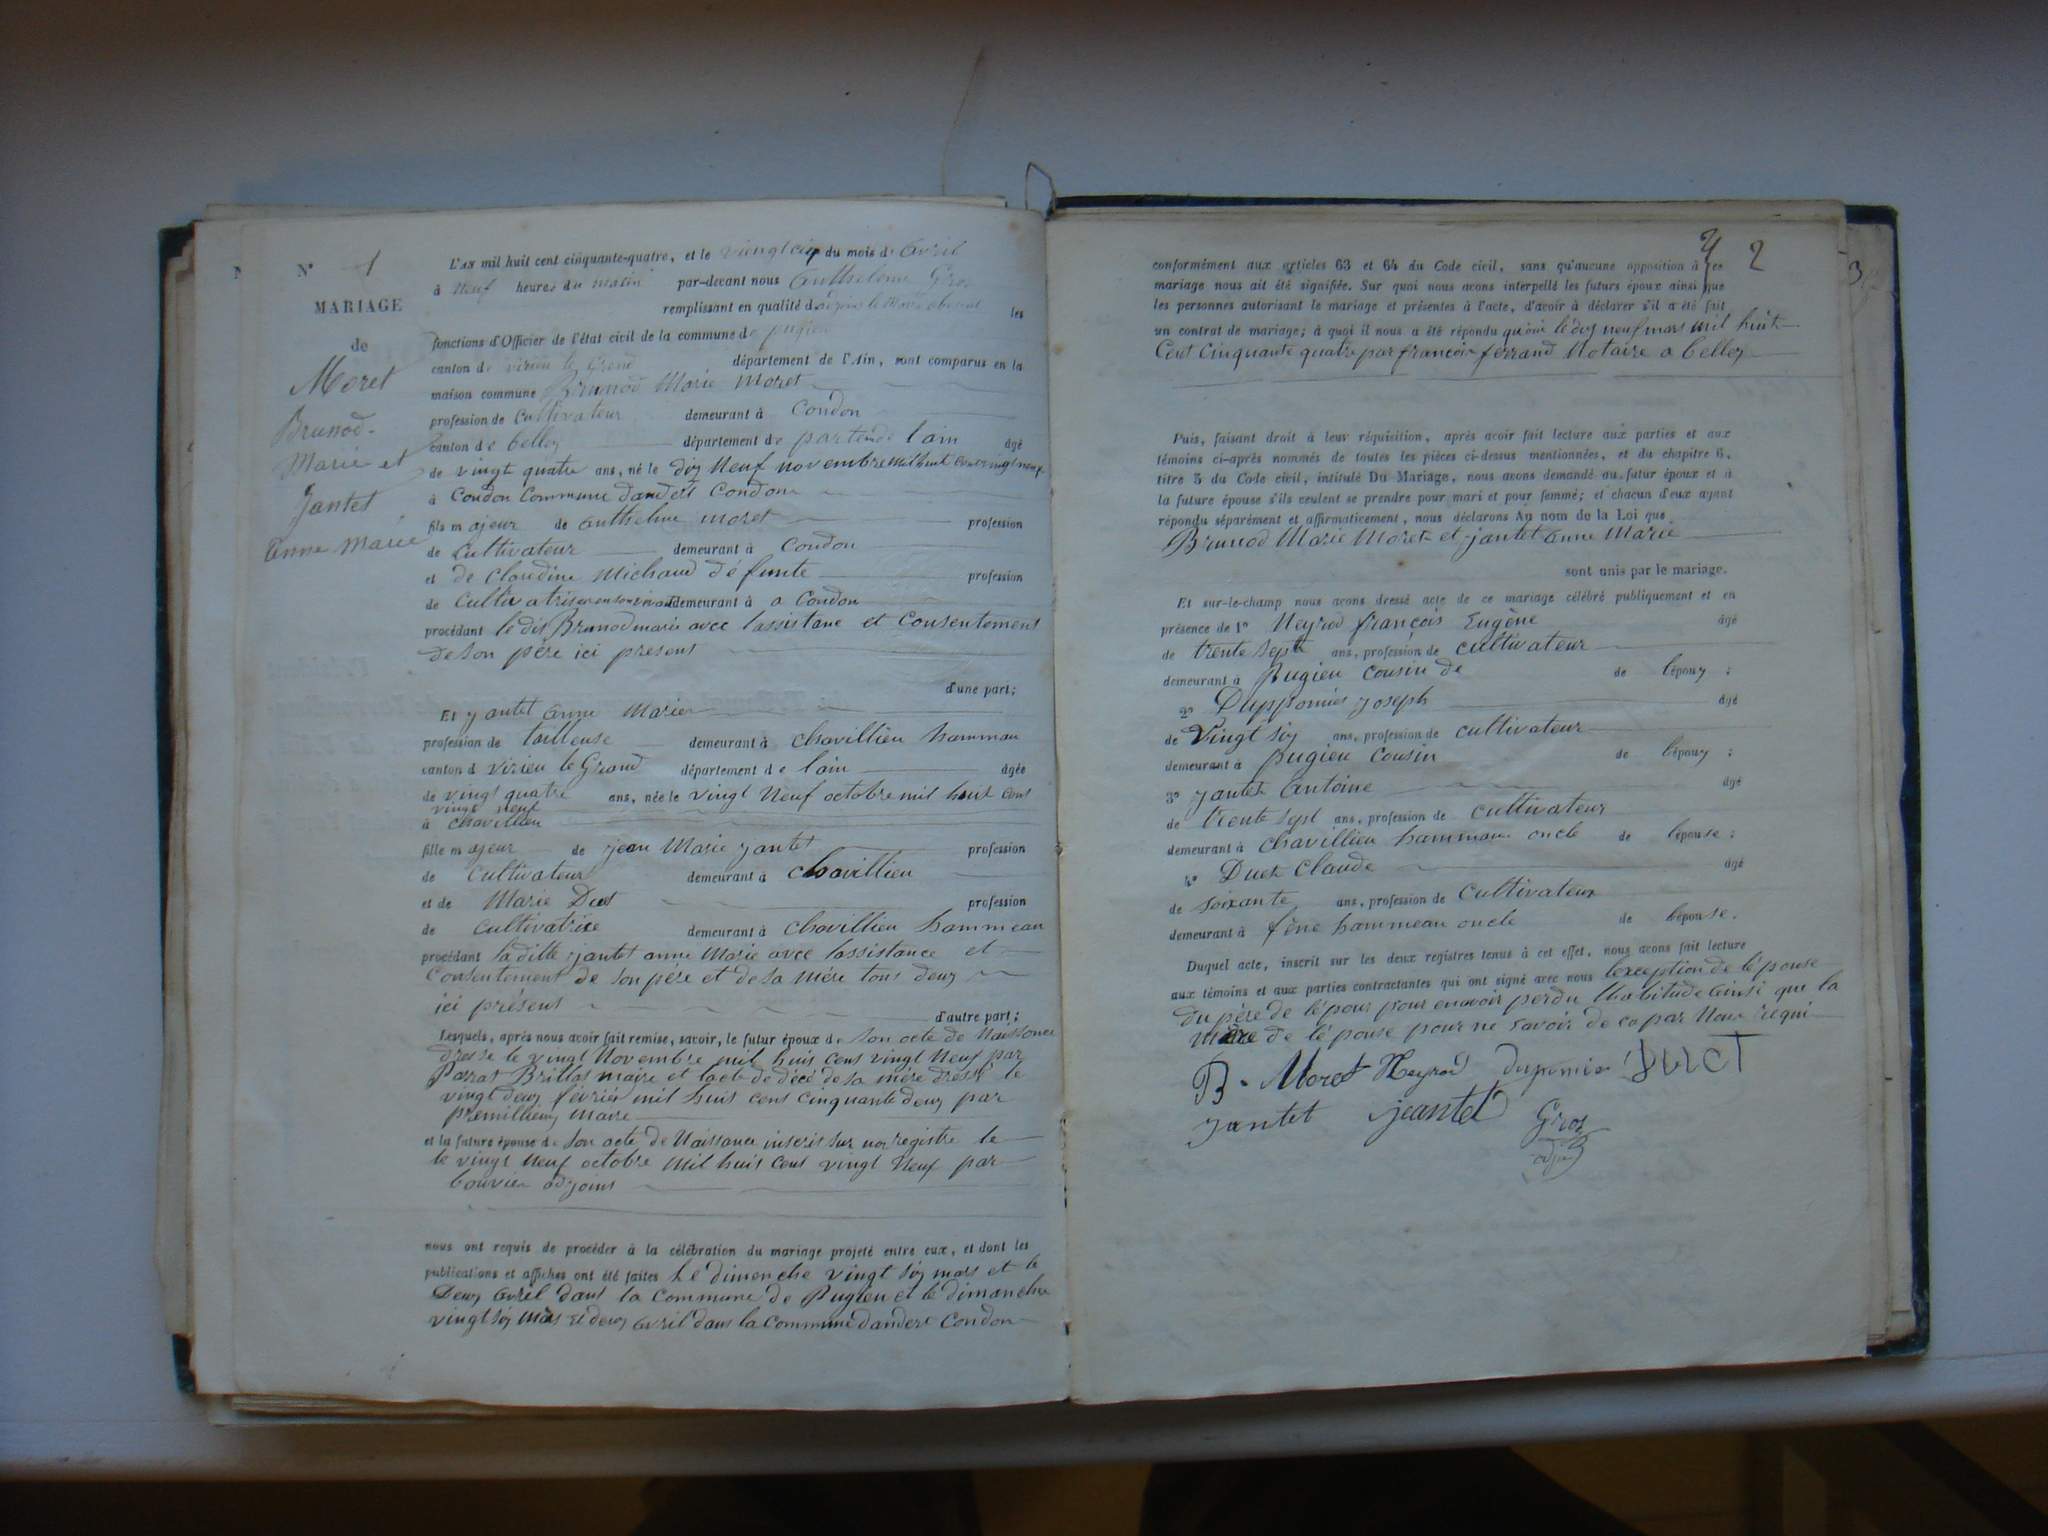 N° 1
MARIAGE
de
Moret
Brunod-
Marie et
Jantet
Anne Marie
L'AN mil huit cent cinquante-quatre, et le viengt cinq du mois d' Avril
à Neuf heures du matin par-devant nous Anthelme Gros
remplissant en qualité d les
fonctions d'Officier de l'état civil de la commune de pugieu
canton de virieu le Grand département de l'Ain, sont comparus en la
maison commune Brunod Marie Moret
profession de Cultivateur demeurant à Condon
canton de belley département de l'ain âgé
de vingt quatre ans, né le dix Neuf novembre mil huit cent vingt neuf
à Condon Commune dandert Condon
fils majeur de anthelme moret profession
de Cultivateur demeurant à Condon
et de Claudine Michaud défunte profession
de Cultivatrise en son vivant demeurant à a Condon
procédant le dit Brunod marie avec lassistane et Consentement
de son père ici present
d'une part;
Et jantet anne Marie
profession de tailleuse demeurant à chavillieu hammau
canton d virieu le Grand département de lain âgée
de vingt quatre ans, née le vingt Neuf octobre mil huit cent
vingt neuf
à chavillieu
fille majeur de jean Marie jantet profession
de Cultivateur demeurant à chavillieu
et de Marie Duet profession
de Cultivatrice demeurant à chavillieu hammeau
procédant laditte jantet anne Marie avec lassistance et
Consentement de son père et de sa mère tous deux
ici présent
d'autre part;
Lesquels, après nous avoir fait remise, savoir, le futur époux de son acte de Naissance
dresse le vingt Novembre mil huit cent vingt Neuf par
Parrat Brillat maire et lacte de décé de sa mère dressé le
vingt deux février mil huit cent cinquante deux par
premillieux maire
et la future épouse de son acte de Naissance inscrit sur nos registre le
le vingt Neuf octobre mil huit cent vingt Neuf par
bouvier adjoint
nous ont requis de procéder à la célébration du mariage projeté entre eux, et dont les
publications et affiches ont été faites Le dimenche vingt six mars et le
Deux Avril dans la Commune de Pugieu et le dimanche
vingt six mars et deux avril dans la Commune dandert Condon
2
conformément aux articles 63 et 64 du Code civil, sans qu'aucune opposition à ce
mariage nous ait été signifiée. Sur quoi nous avons interpellé les futurs époux ainsi que
les personnes autorisant le mariage et présentes à l'acte, d'avoir à déclarer s'il a été fait
un contrat de mariage; à quoi il nous a été répondu qu'oui le dix neuf mars mil huit
Cent Cinquante quatre par francois ferrand Notaire a belley
Puis, faisant droit à leur réquisition, après avoir fait lecture aux parties et aux
témoins ci-après nommés de toutes les pièces ci-dessus mentionnées, et du chapitre 6,
titre 5 du Code civil, intitulé Du Mariage, nous avons demandé au futur époux et à
la future épouse s'ils veulent se prendre pour mari et pour femme; et chacun d'eux ayant
répondu séparément et affirmativement, nous déclarons Au nom de la Loi que
Brunod Marie Moret et jantet Anne Marie
sont unis par le mariage.
Et sur-le-champ nous avons dressé acte de ce mariage célébré publiquement et en
présence de 1° Neyrod françois Eugène âgé
de trente sept ans, profession de cultivateur
demeurant à Pugieu cousin de de lépoux ;
2° Dupponiés joseph âgé
de Vingt six ans, profession de cultivateur
demeurant à pugieu Cousin de lépoux ;
3° jantet Antoine âgé
de trente sept ans, profession de cultivateur
demeurant à chavillieu hammau oncle de lépouse ;
4° Duet Claude âgé
de soixante ans, profession de Cultivateur
demeurant à fène hammeau oncle de lépouse.
Duquel acte, inscrit sur les deux registres tenus à cet effet, nous avons fait lecture
aux témoins et aux parties contractantes qui ont signé avec nous lexception de lépouse
du père de lépoux pour enavoir perdu lhabitude ainsi que la
mère de lépouse pour ne savoir de ce par Nous requi
B. Moret Neyrod Duponier DUCT
jantet jeantet Gros
adj
3